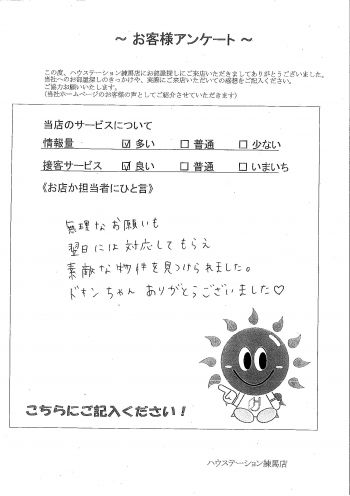 ～ お客様アンケート ～
この度、ハウステーション練馬店にお部屋探しにご来店いただきましてありがとうございました。
当社へのお部屋探しのきっかけや、実際にご来店いただいての感想をご記入ください。
ご協力お願いいたします。
（当社ホームページのお客様の声としてご紹介させていただきます）
当店のサービスについて
情報量 ☑ 多い □ 普通 □ 少ない
接客サービス ☑ 良い □ 普通 □ いまいち
《お店か担当者にひと言》
無理なお願いも
翌日には対応してもらえ
素敵な物件を見つけられました。
ドキンちゃん ありがとうございました♡
こちらにご記入ください！
ハウステーション練馬店